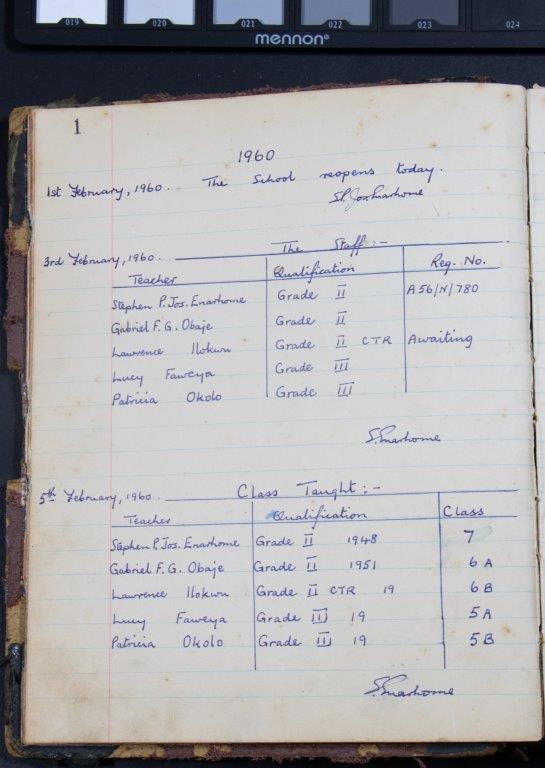 019 020 021 022 023 024
mennon®
1
1960
1st February, 1960. The School reopens today.
S.P. Jos. Enarhome
3rd February, 1960. The Staff :-
Teacher Qualification Reg. No.
Stephen P. Jos. Enarhome Grade II A56/N/780
Gabriel F. G. Obaje Grade II
Lawrence Ilokwu Grade II CTR Awaiting
Lucy Faweya Grade III
Patricia Okolo Grade III
S. Enarhome
5th February, 1960. Class Taught :-
Teacher Qualification Class
Stephen P. Jos. Enarhome Grade II 1948 7
Gabriel F. G. Obaje Grade II 1951 6A
Lawrence Ilokwu Grade II CTR 19 6B
Lucy Faweya Grade III 19 5A
Patricia Okolo Grade III 19 5B
S. Enarhome